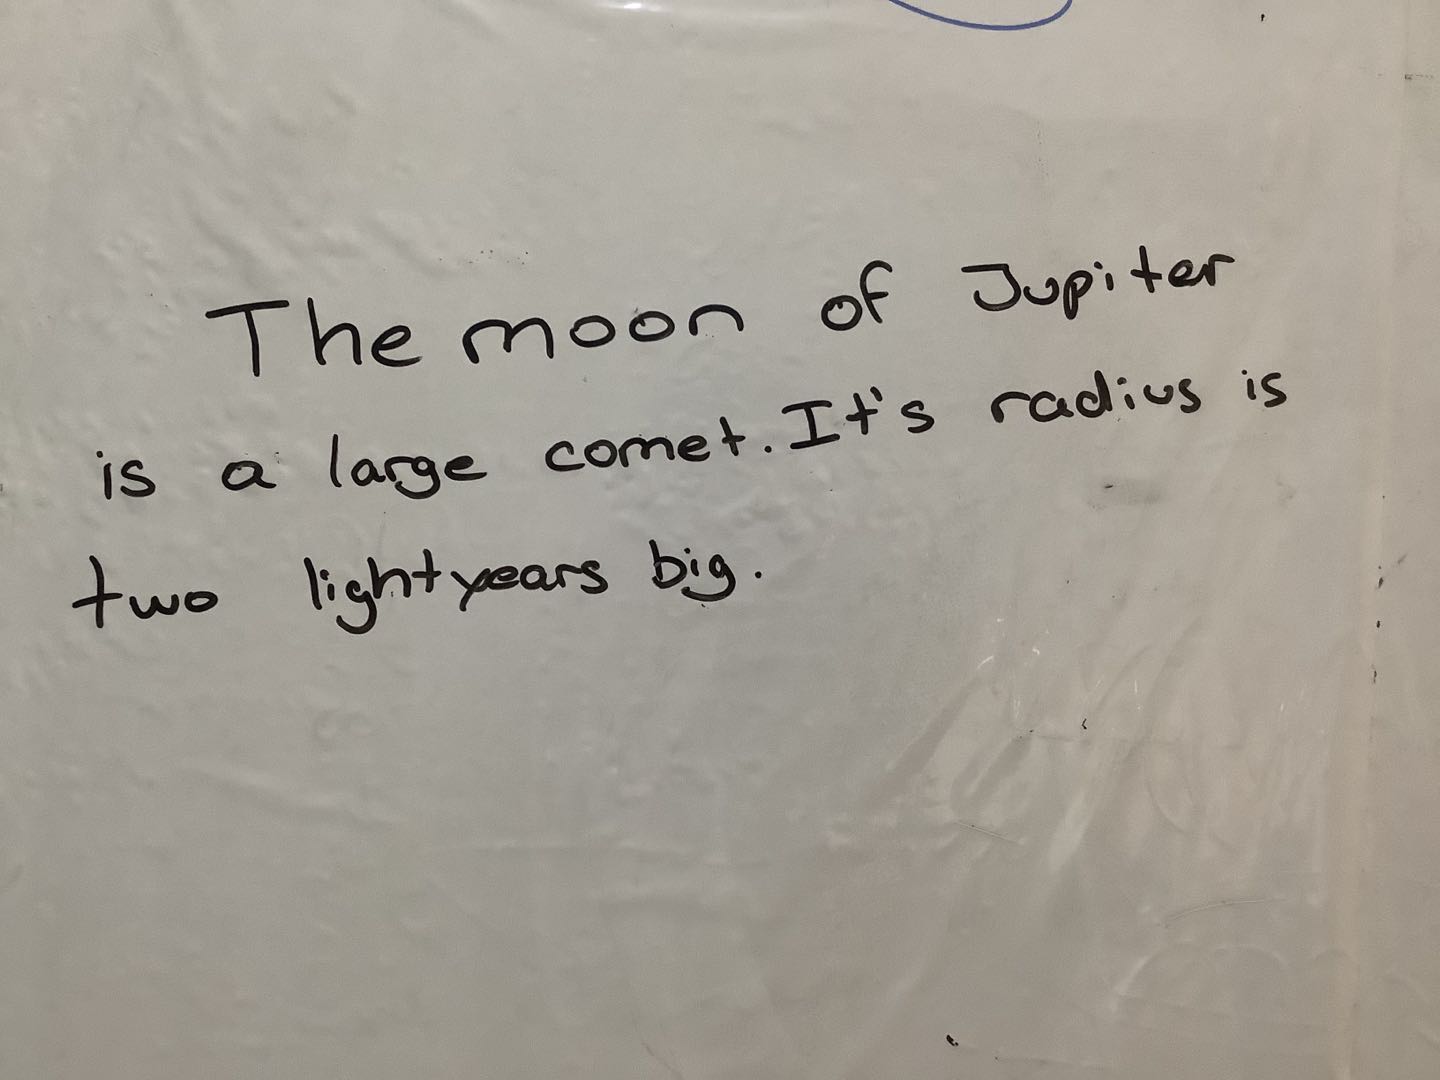 The moon of Jupiter
is a large comet. It's radius is
two lightyears big.